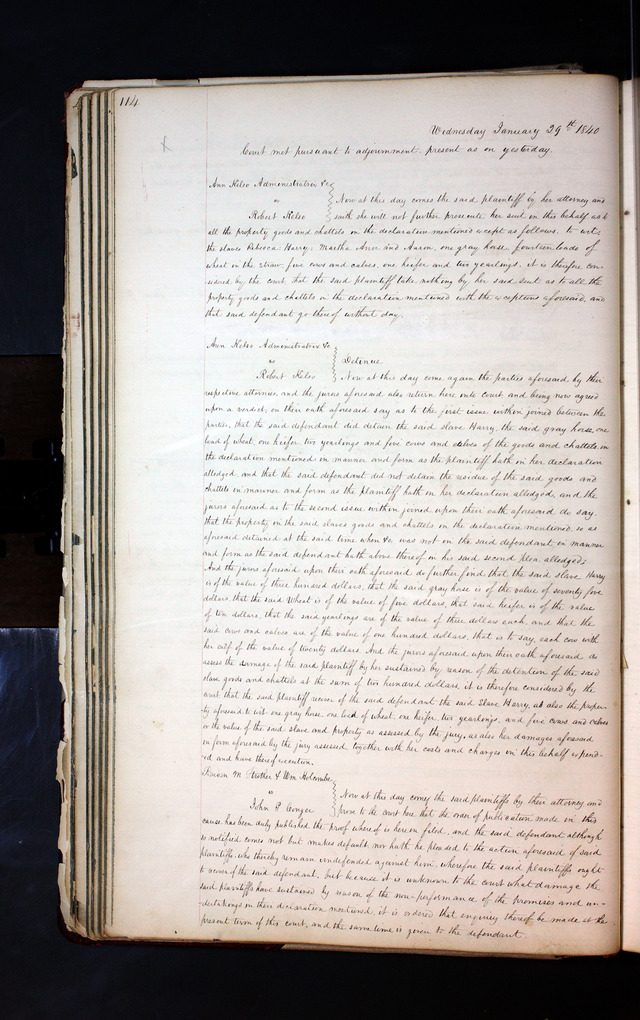 114
Wednesday January 29th 1840
Court met pursuant to adjournment. present as on yesterday.
Ann Kelso Administratrix &c
vs
Now at this day comes the said plaintiff by her attorney and
Robert Kelso
saith she will not further prosecute her suit in this behalf as to
all the property goods and chattels in the declaration mentioned except as follows. to wit:
the slaves Rebecca. Harry. Martha Ann and Aaron, one gray horse fourteen loads of
wheat in the straw, five cows and calves, one heifer and two yearlings. it is therefore con-
sidered by the court that the said plaintiff take nothing by her said suit as to all the
property goods and chattels in the declaration mentioned with the exceptions aforesaid, and
that said defendant go thereof without day.
Ann Kelso Administratrix &c
vs
Detinue
Robert Kelso
Now at this day come again the parties aforesaid by their
respective attornies, and the jurors aforesaid also return here into court and being now agreed
upon a verdict, on their oath aforesaid say as to the first issue within joined between the
parties, that the said defendant did detain the said slave Harry, the said gray horse, one
load of wheat, one heifer, two yearlings and five cows and calves of the goods and chattels in
the declaration mentioned in manner and form as the plaintiff hath in her declaration
alledged, and that the said defendant did not detain the residue of the said goods and
chattels in manner and form as the plaintiff hath in her declaration alledged, and the
jurors aforesaid as to the second issue within joined upon their oath aforesaid do say
that the property in the said slaves goods and chattels in the declaration mentioned, so as
aforesaid detained at the said time when &c was not in the said defendant, in manner
and form as the said defendant hath above thereof in his said second plea alledged.
And the jurors aforesaid upon their oath aforesaid do further find that the said slave Harry
is of the value of three hundred dollars, that the said gray horse is of the value of seventy five
dollars, that the said Wheat is of the value of five dollars, that said heifer is of the value
of ten dollars, that the said yearlings are of the value of three dollars each, and that the
said cows and calves are of the value of one hundred dollars, that is to say, each cow with
her calf of the value of twenty dollars. And the jurors aforesaid upon their oath aforesaid do
assess the damage of the said plaintiff by her sustained by reason of the detention of the said
slave goods and chattels at the sum of two hundred dollars, it is therefore considered by the
court that the said plaintiff recover of the said defendant the said slave Harry, as also the proper-
ty aforesaid to wit, one gray horse, one load of wheat, one heifer, two yearlings, and five cows and calves
or the value of the said slave and property as assessed by the jury, as also her damages aforesaid
in form aforesaid by the jury assessed together with her costs and charges in this behalf expend-
ed and have thereof execution.
M. Prother & Wm Holcombe
vs
Now at this day comes the said plaintiffs by their attorney and
John P Conger
prove to the court here that the order of publication made in this
cause has been duly published the proof whereof is herein filed, and the said defendant although
so notified comes not but makes default, nor hath he pleaded to the action aforesaid of said
plaintiffs, who thereby remain undefended against him, wherefore the said plaintiffs ought
to recover of the said defendant, but because it is unknown to the court what damage the
said plaintiffs have sustained by reason of the non-performance of the promises and un-
dertakings in their declaration mentioned, it is ordered that enquiry thereof be made at the
present term of this court, and the same time is given to the defendant.